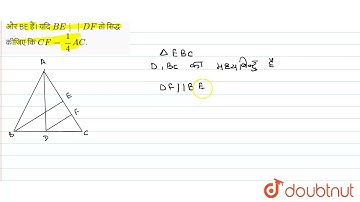 और BE हैं। यदि BE || DF तो सिद्ध
कीजिए कि CF = 1/4 AC.
△ EBC
D, BC का मध्य बिन्दु है
DF || BE
A
E
F
B
D
C
doubtnut